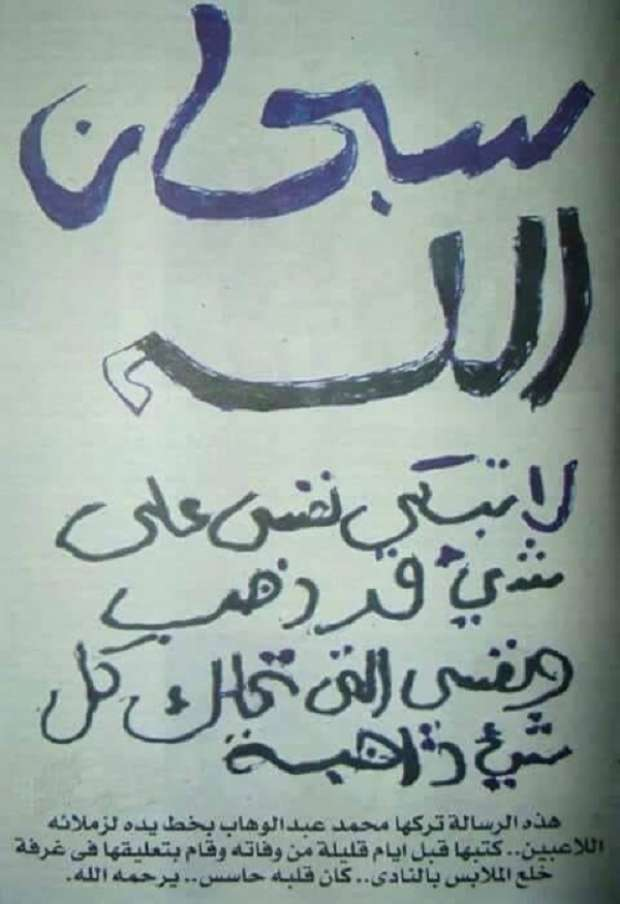 سبحان
الله
لا تبكي نفسى على
شيء قد ذهب
ونفسى التى تملك كل
شيء ذاهبة
هذه الرسالة تركها محمد عبدالوهاب بخط يده لزملائه
اللاعبين.. كتبها قبل ايام قليلة من وفاته وقام بتعليقها فى غرفة
خلع الملابس بالنادى.. كان قلبه حاسس.. يرحمه الله.